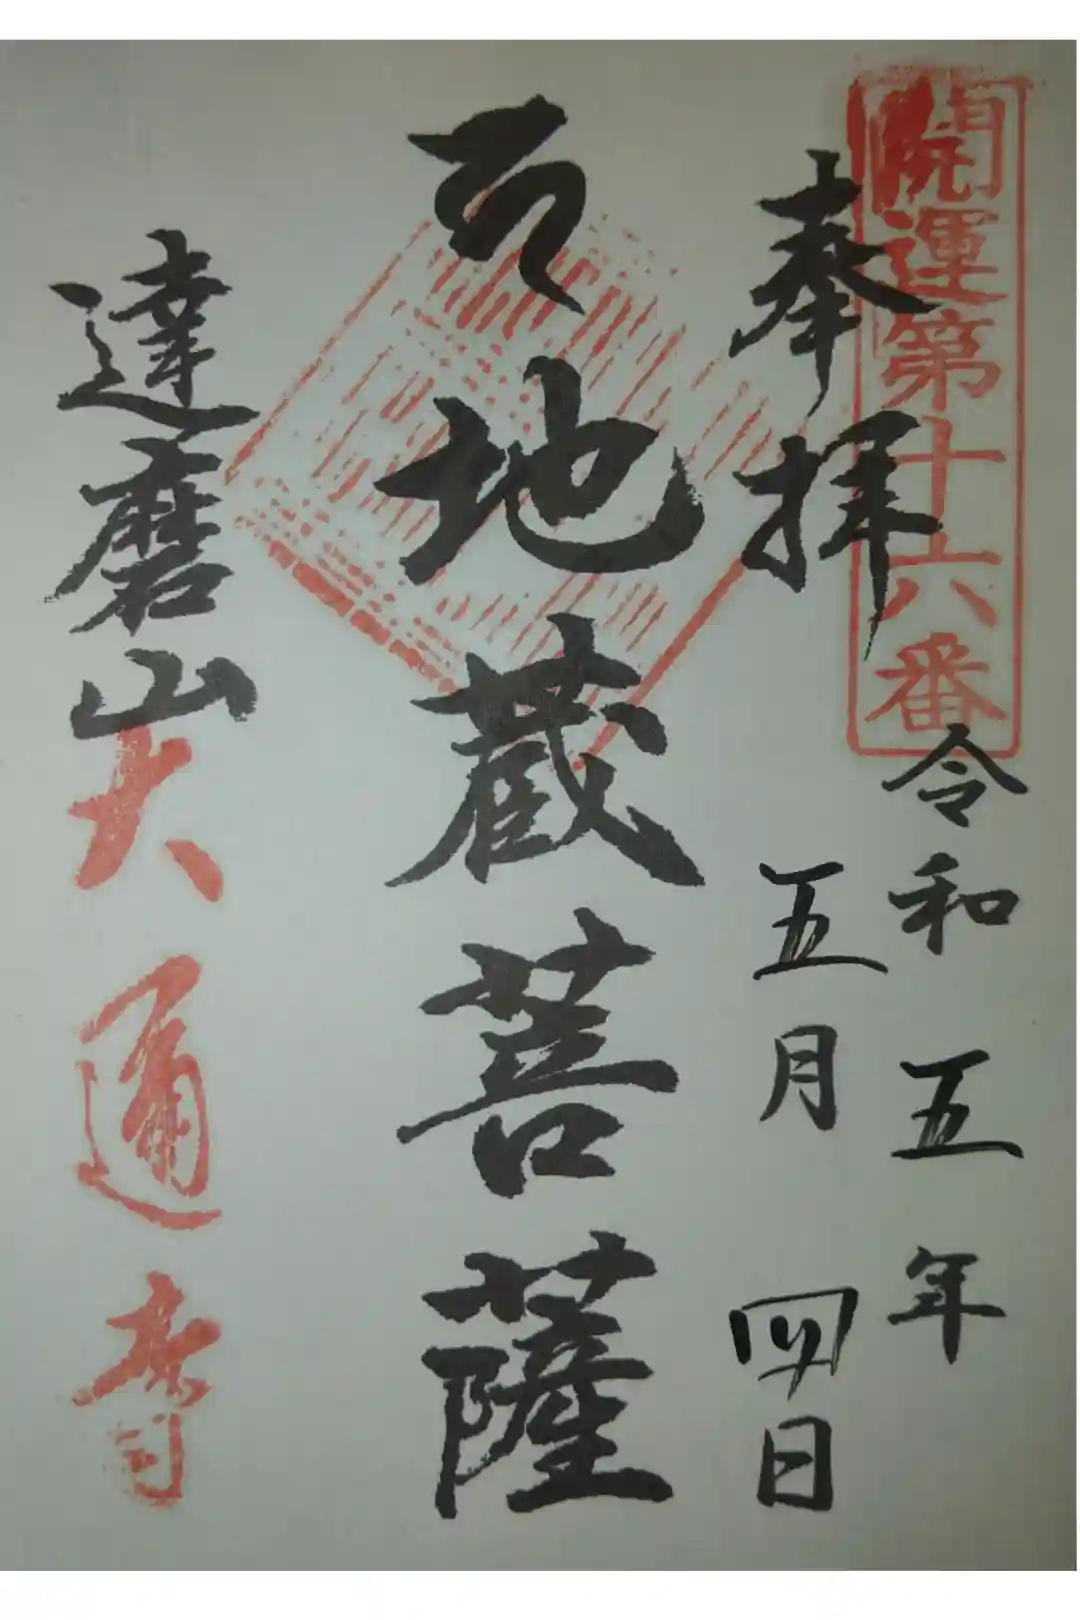 開運第十六番
奉拝
令和五年
五月四日
地蔵菩薩
達磨山大通寺